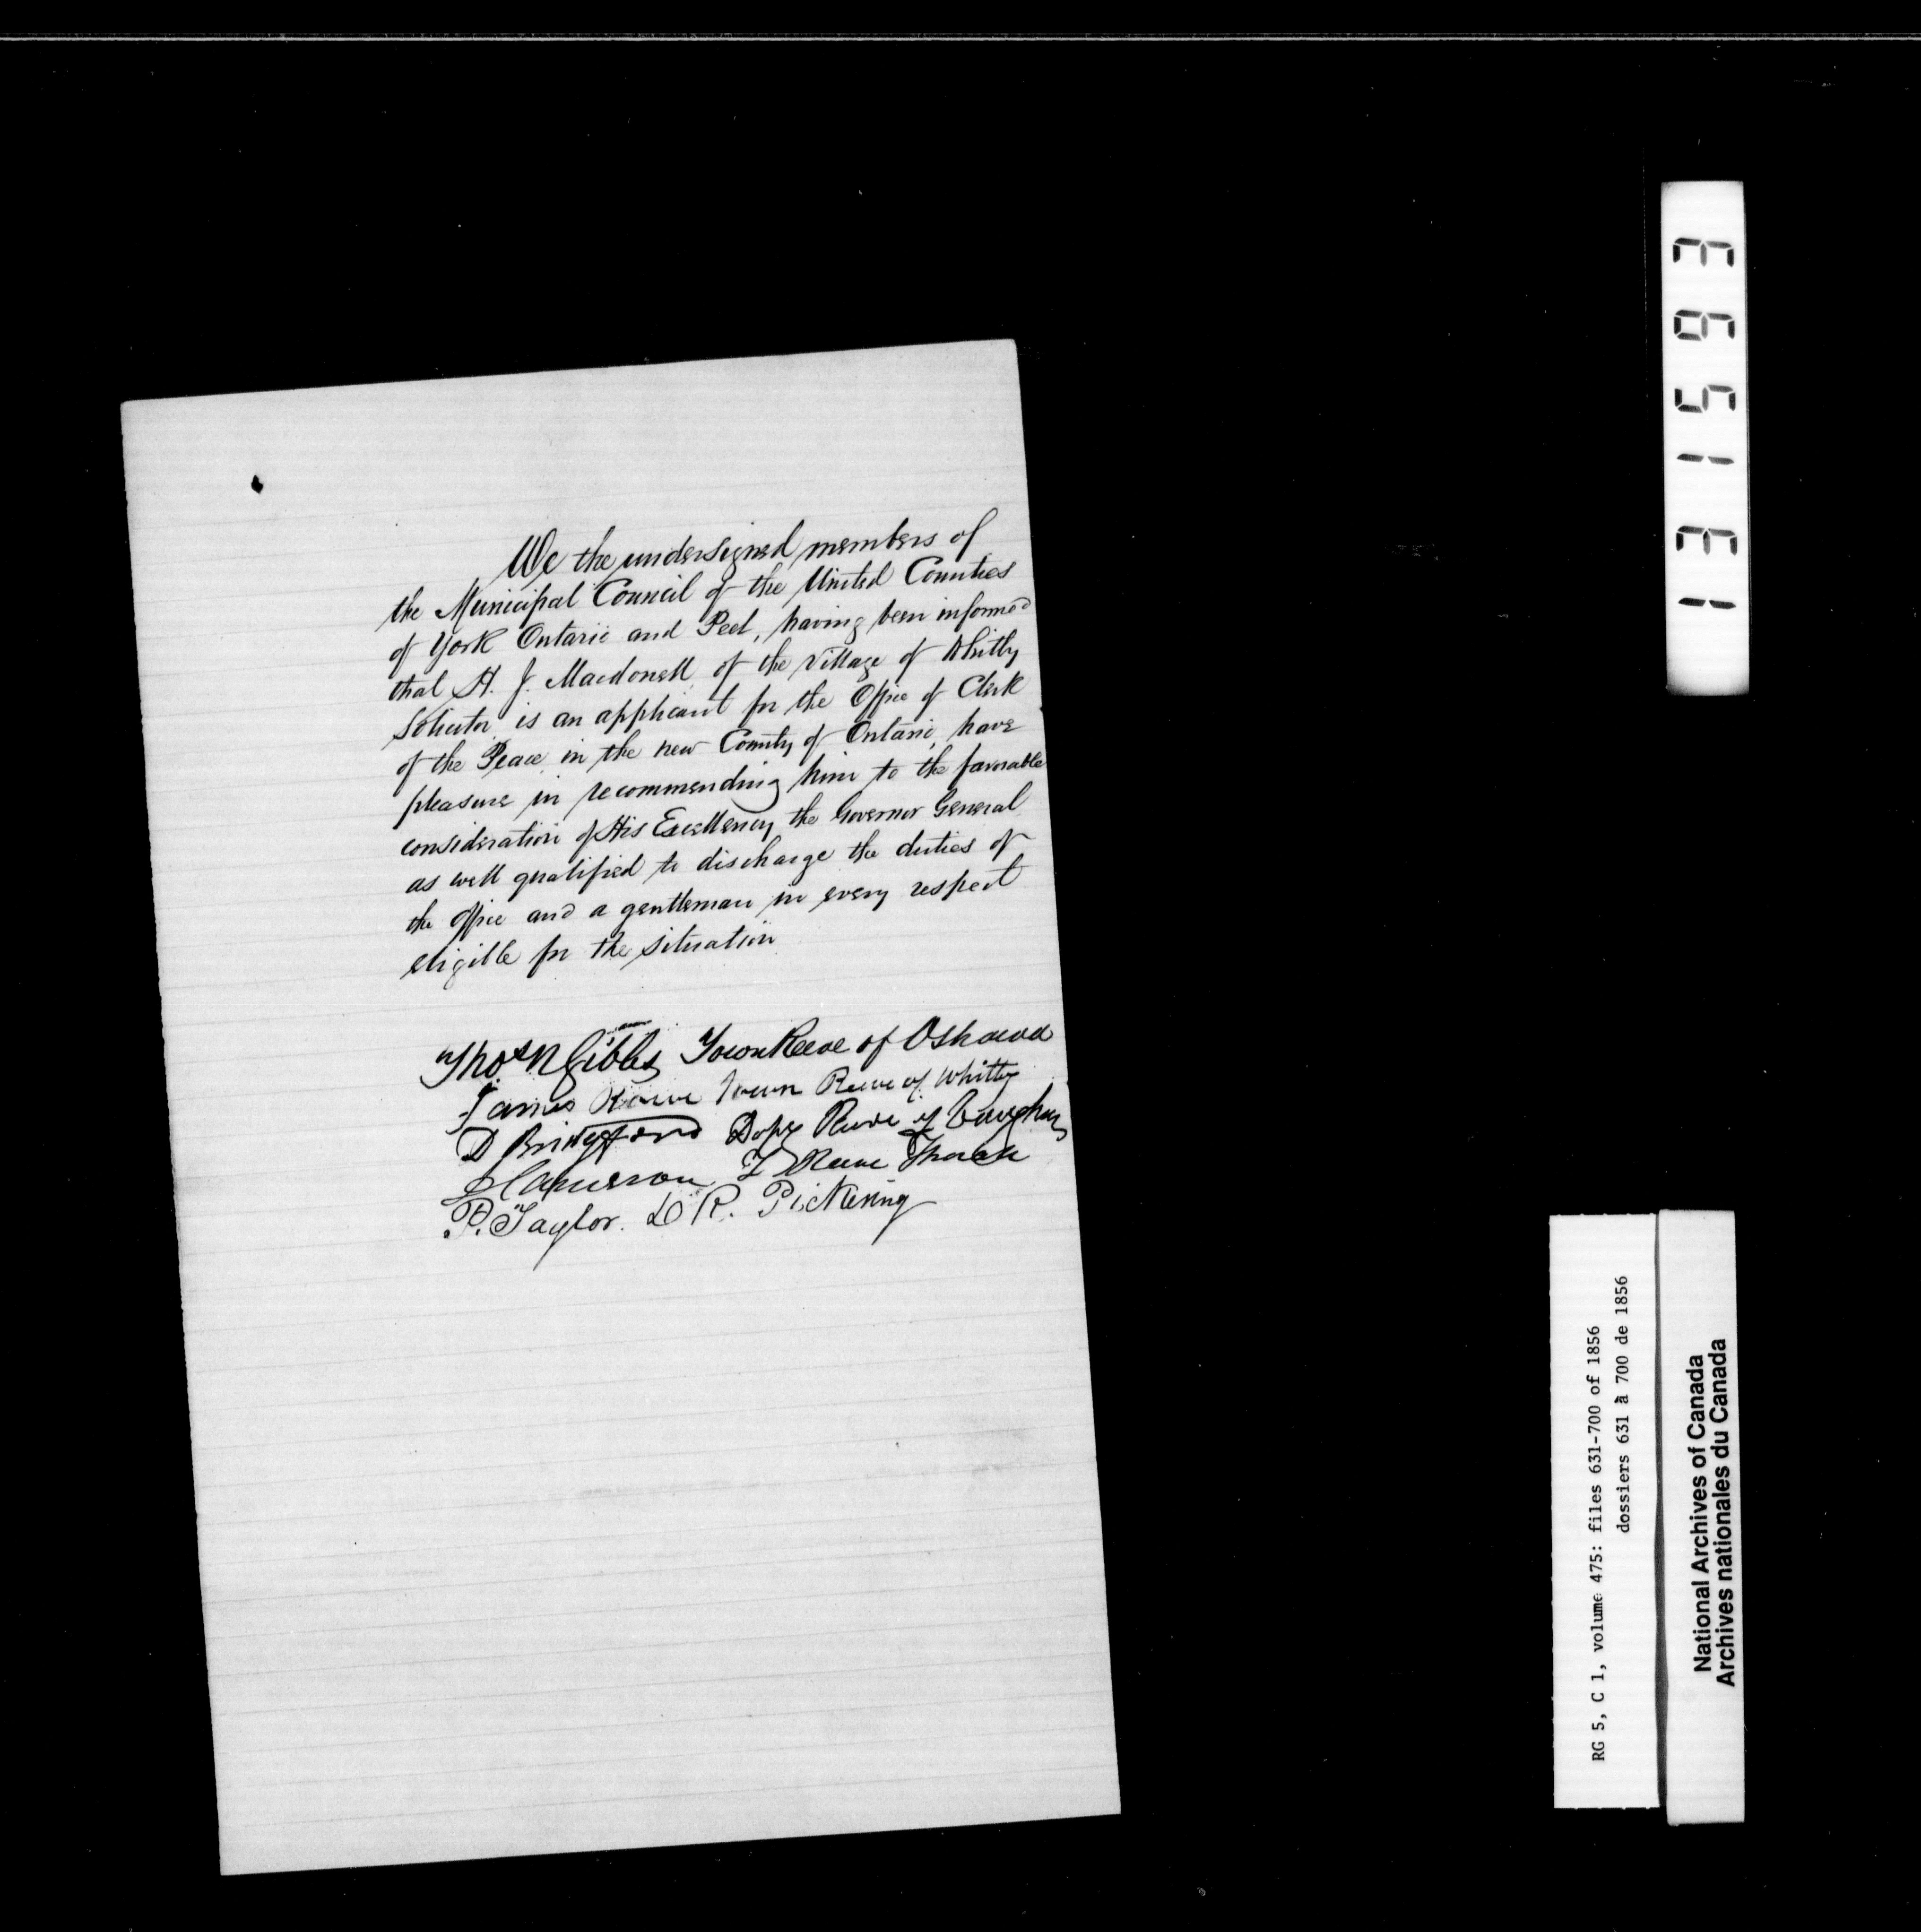 We the undersigned members of
the Municipal Council of the United Counties
of York Ontario and Peel, having been informed
that H. J. Macdonell, of the Village of Whitby
Solicitor, is an applicant for the Office of Clerk
of the Peace, in the new County of Ontario, have
pleasure in recommending him to the favorable
consideration of His Excellency the Governor General
as well qualified to discharge the duties of
the office and a gentleman in every respect
eligible for the situation
Thos N Gibbs Town Reeve of Oshawa
James Rowe Town Reeve of Whitby
D Bridgford Depy Reeve of Vaughan
Cameron T Reeve Thorah
P. Taylor. D R. Pickering
131563
RG 5, C 1, volume 475: files 631-700 of 1856
dossiers 631 à 700 de 1856
National Archives of Canada
Archives nationales du Canada